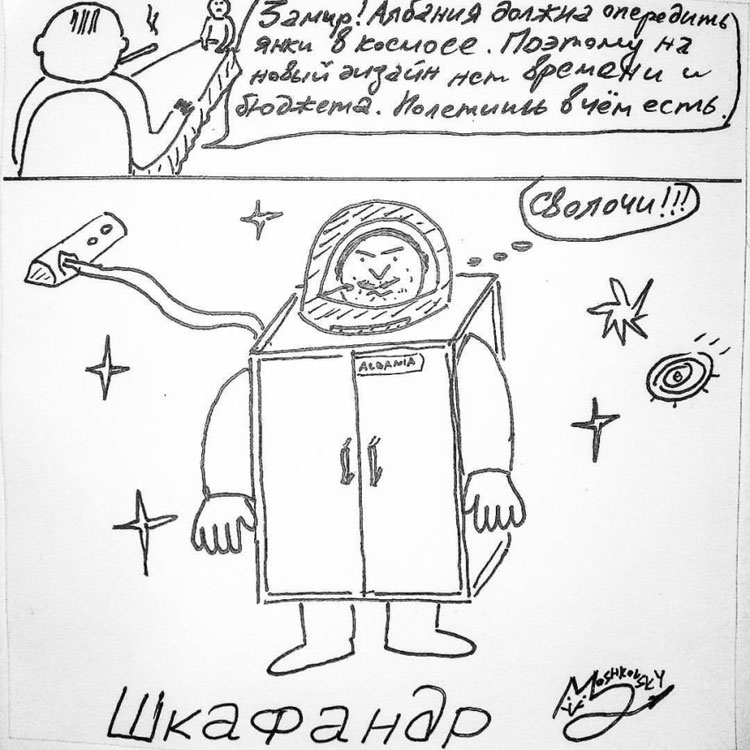 Замир! Албания должна опередить
янки в космосе. Поэтому на
новый дизайн нет времени и
бюджета. Полетишь в чём есть.
Сволочи!!!
ALBANIA
Шкафандр
MOSHKOVSKY